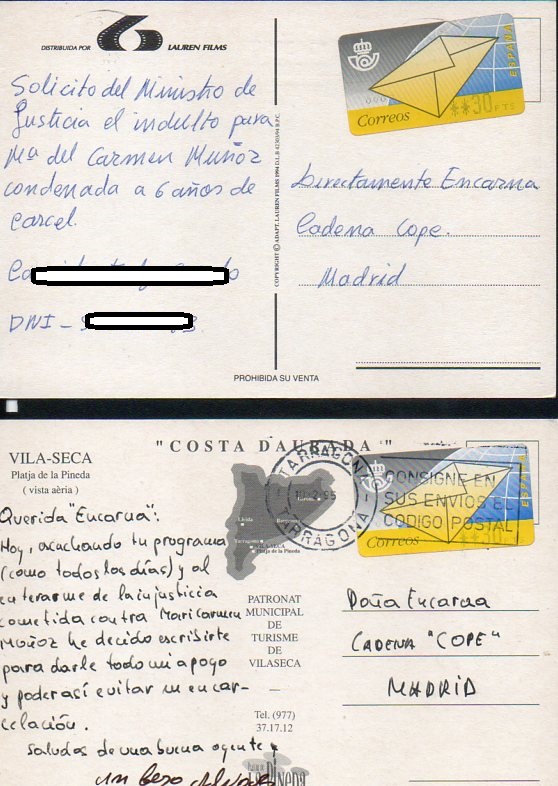 DISTRIBUIDA POR
LAUREN FILMS
Solicito del Ministro de
Justicia el indulto para
Mª del Carmen Muñoz
condenada a 6 años de
carcel.
DNI -
COPYRIGHT © ADAPT. LAUREN FILMS 1994
ESPAÑA
Correos
**30 PTS
Directamente Encarna
Cadena Cope.
Madrid
PROHIBIDA SU VENTA
"COSTA DAURADA"
VILA-SECA
Platja de la Pineda
( vista aèria )
Querida "Encarna":
Hoy, escuchando tu programa
(como todos los días) y al
enterarme de la injusticia
cometida contra Maricarmen
Muñoz he decido escribirte
para darle todo mi apoyo
y poder así evitar su encar-
celación.
Saludos de una buena oyente
un beso
Lleida
Tarragona
VILA-SECA
Platja de la Pineda
PATRONAT
MUNICIPAL
DE
TURISME
DE
VILASECA
Tel. (977)
37.17.12
Pineda
TARRAGONA
TARRAGONA
CONSIGNE EN
SUS ENVIOS EL
CODIGO POSTAL
ESPAÑA
Correos
Doña Encarna
CADENA "COPE"
MADRID